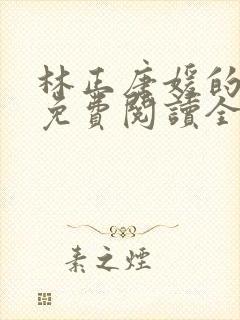 林正唐媛的
免費閱讀全
素之煙